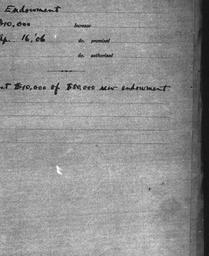 Endowment
$10,000 Increase
Ap. 16, '06 do. promised
do. authorized
nt $10,000 of $50,000 new endowment